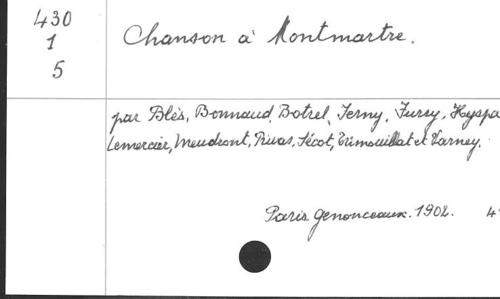 430
1
5
Chanson à Montmartre.
par Blès, Bonnaud, Botrel, Ferny, Fursy, Hyspa
Lemercier, Meudront, Rivas, Sécot, Trimouillat et Varney.
Paris Genonceaux. 1902. 4